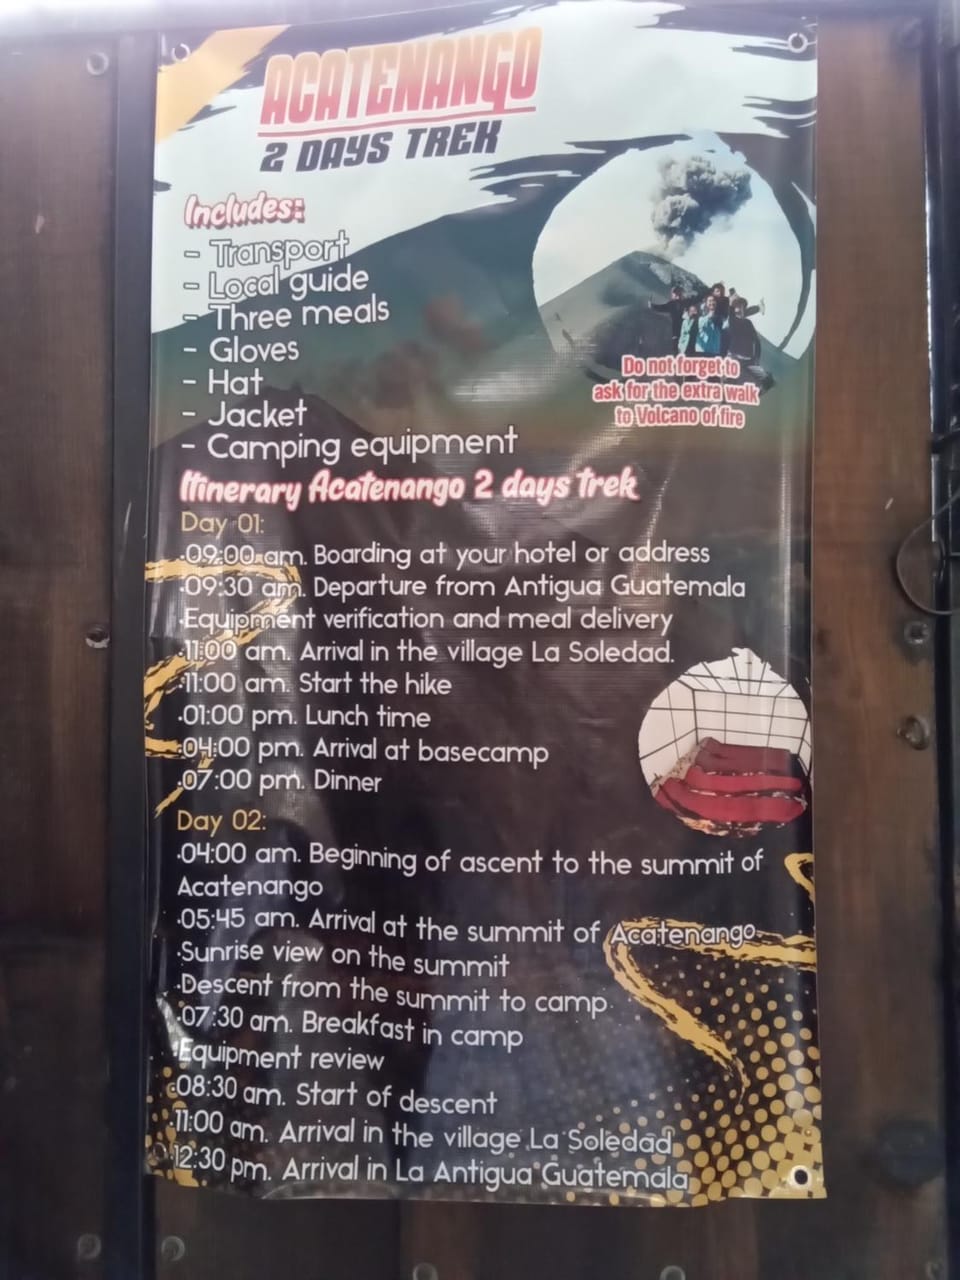 ACATENANGO
2 DAYS TREK
Includes:
- Transport
- Local guide
- Three meals
- Gloves
- Hat
- Jacket
- Camping equipment
Do not forget to
ask for the extra walk
to Volcano of fire
Itinerary Acatenango 2 days trek
Day 01:
·09:00 am. Boarding at your hotel or address
·09:30 am. Departure from Antigua Guatemala
·Equipment verification and meal delivery
·11:00 am. Arrival in the village La Soledad.
·11:00 am. Start the hike
·01:00 pm. Lunch time
·04:00 pm. Arrival at basecamp
·07:00 pm. Dinner
Day 02:
·04:00 am. Beginning of ascent to the summit of
Acatenango
·05:45 am. Arrival at the summit of Acatenango.
·Sunrise view on the summit
·Descent from the summit to camp.
·07:30 am. Breakfast in camp
·Equipment review
·08:30 am. Start of descent
·11:00 am. Arrival in the village La Soledad.
·12:30 pm. Arrival in La Antigua Guatemala